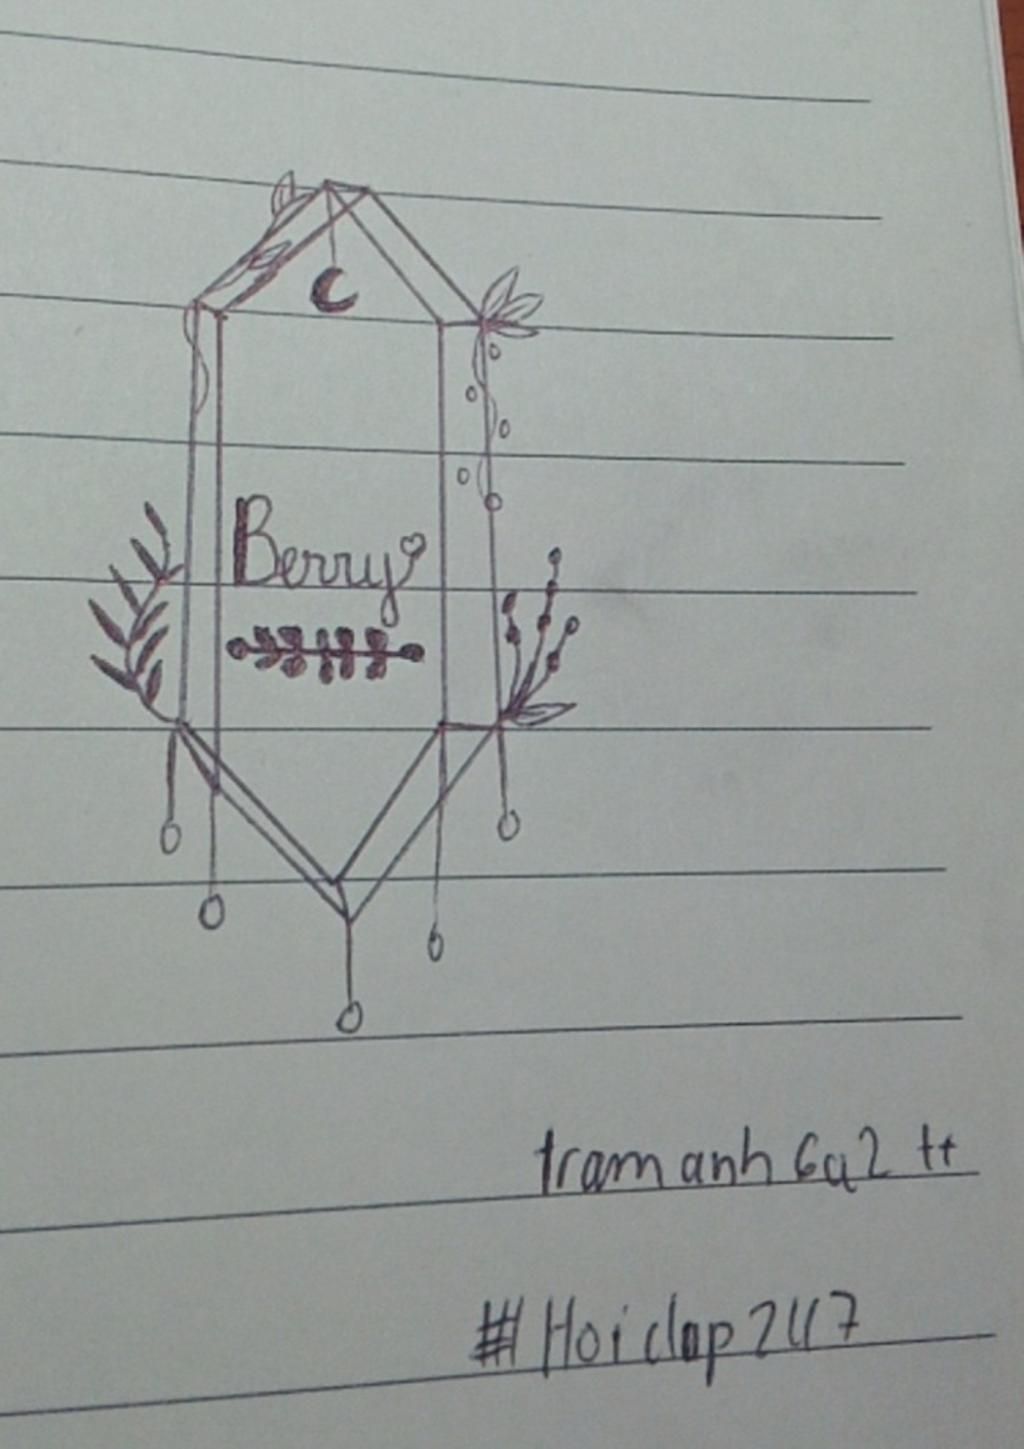 Berry
tramanh6a2 tt
#Hoidap247